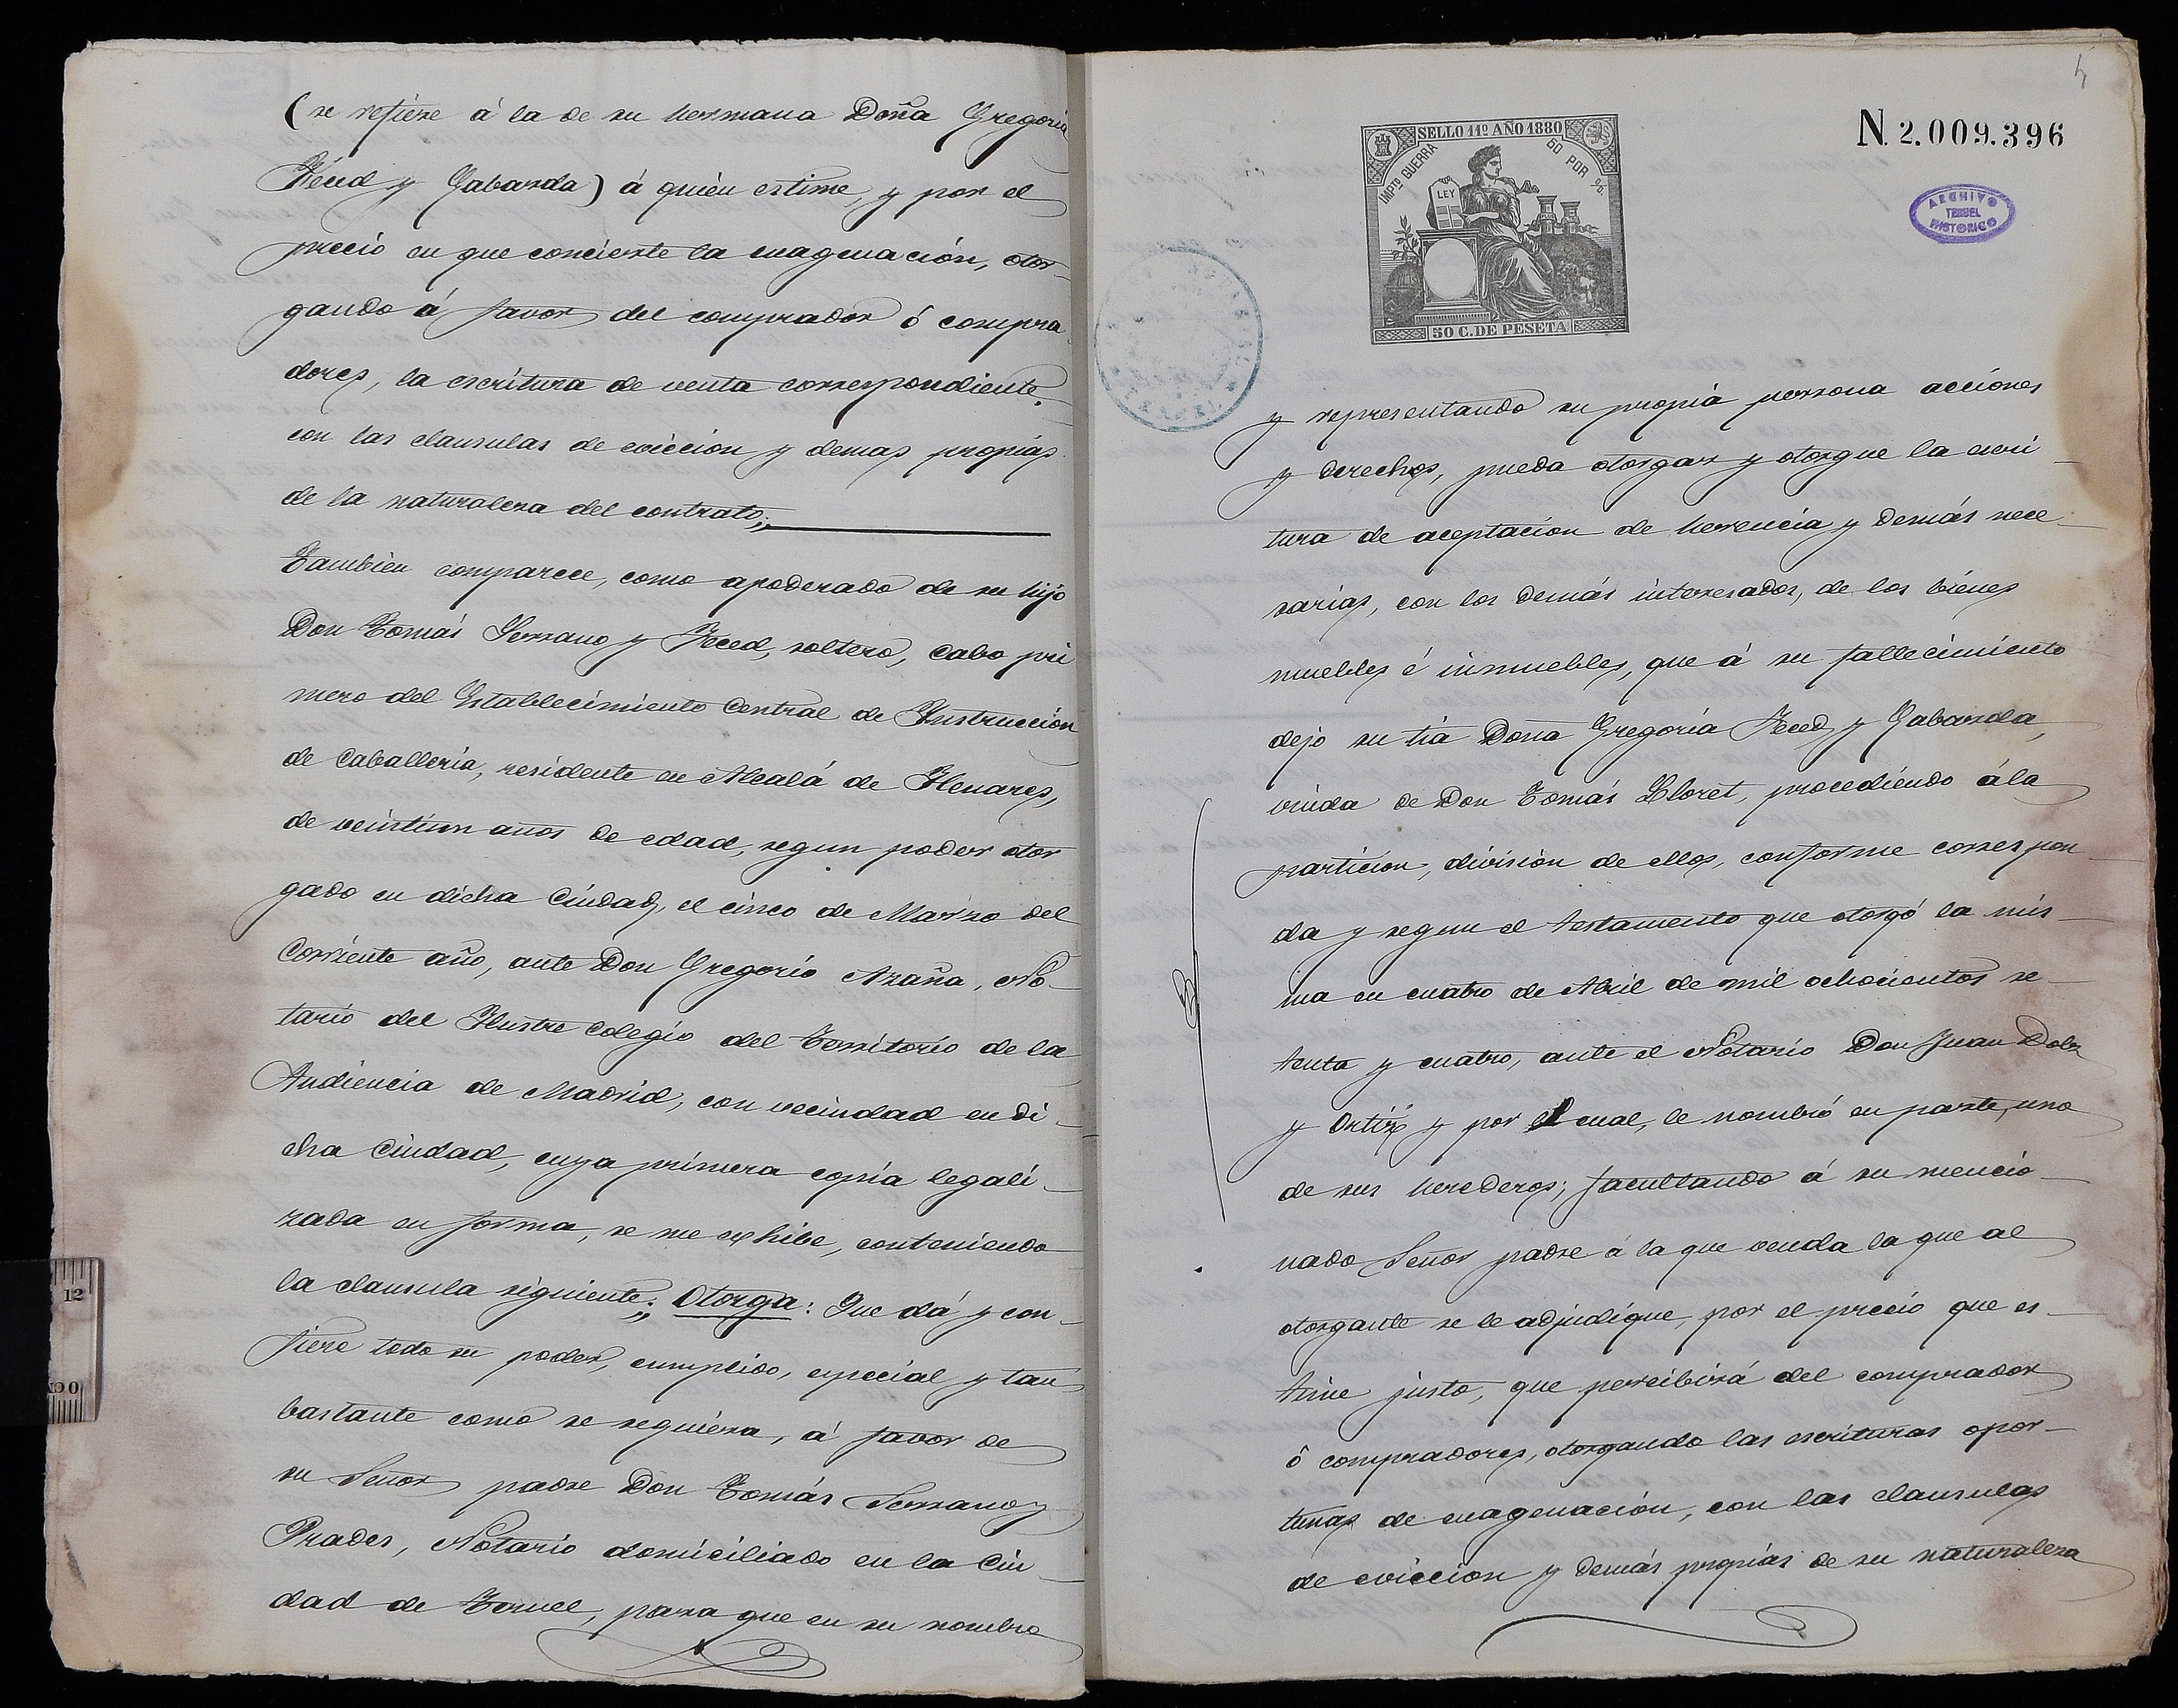 (se refiere á la de su hermana Doña Gregoria
Féced y Gabarda) á quién estime, y por el
precio en que concierte la enagenación, otor-
gando á favor del comprador ó compra-
dores, la escritura de venta correspondiente,
con las clausulas de evicción y demas propias
de la naturaleza del contrato;
Tambien comparece, como apoderado de su hijo
Don Tomás Serrano y Féced, soltero, Cabo pri
mero del Establecimiento Central de Instrucción
de Caballeria, residente en Alcalá de Henares,
de veintiun años de edad, segun poder otor
gado en dicha Ciudad, el cinco de Marzo del
Corriente año, ante Don Gregorio Azaña, No-
tario del Ilustre Colegio del Territorio de la
Audiencia de Madrid, con vecindad en di-
cha Ciudad, cuya primera copia legali-
zada en forma, se me exhibe, conteniendo
la clausula siguiente: Otorga: Que dá y con-
fiere todo su poder, cumplido, especial y tan
bastante como se requiera, á favor de
su Señor padre Don Tomás Serrano y
Prades, Notario domiciliado en la Ciu-
dad de Teruel, para que en su nombre
4
SELLO 11º AÑO 1880
IMPTO GUERRA
60 POR %.
LEY
50 C. DE PESETA
N. 2.009.396
ARCHIVO
TERUEL
HISTORICO
y representando su propia persona acciones
y derechos, pueda otorgar y otorgue la escri-
tura de aceptacion de herencia y demás nece-
sarias, con los demás interesados, de los bienes
muebles é inmuebles, que á su fallecimiento
dejo su tia Doña Gregoria Feced y Gabarda,
viuda de Don Tomás Lloret, procediendo á la
particion, división de ellos, conforme correspon-
da y segun el testamento que otorgó la mis-
ma en cuatro de Abril de mil ochocientos se-
tenta y cuatro, ante el Notario Don Juan Dolz
y Ortiz y por el cual, le nombró en parte, uno
de sus herederos; facultando á su mencio-
nado Señor padre á la que venda la que al
otorgante se le adjudique, por el precio que es-
time justo, que percibirá del comprador
ó compradores, otorgando las escrituras opor-
tunas de enagenación, con las clausulas
de evicción y demás propias de su naturaleza
12